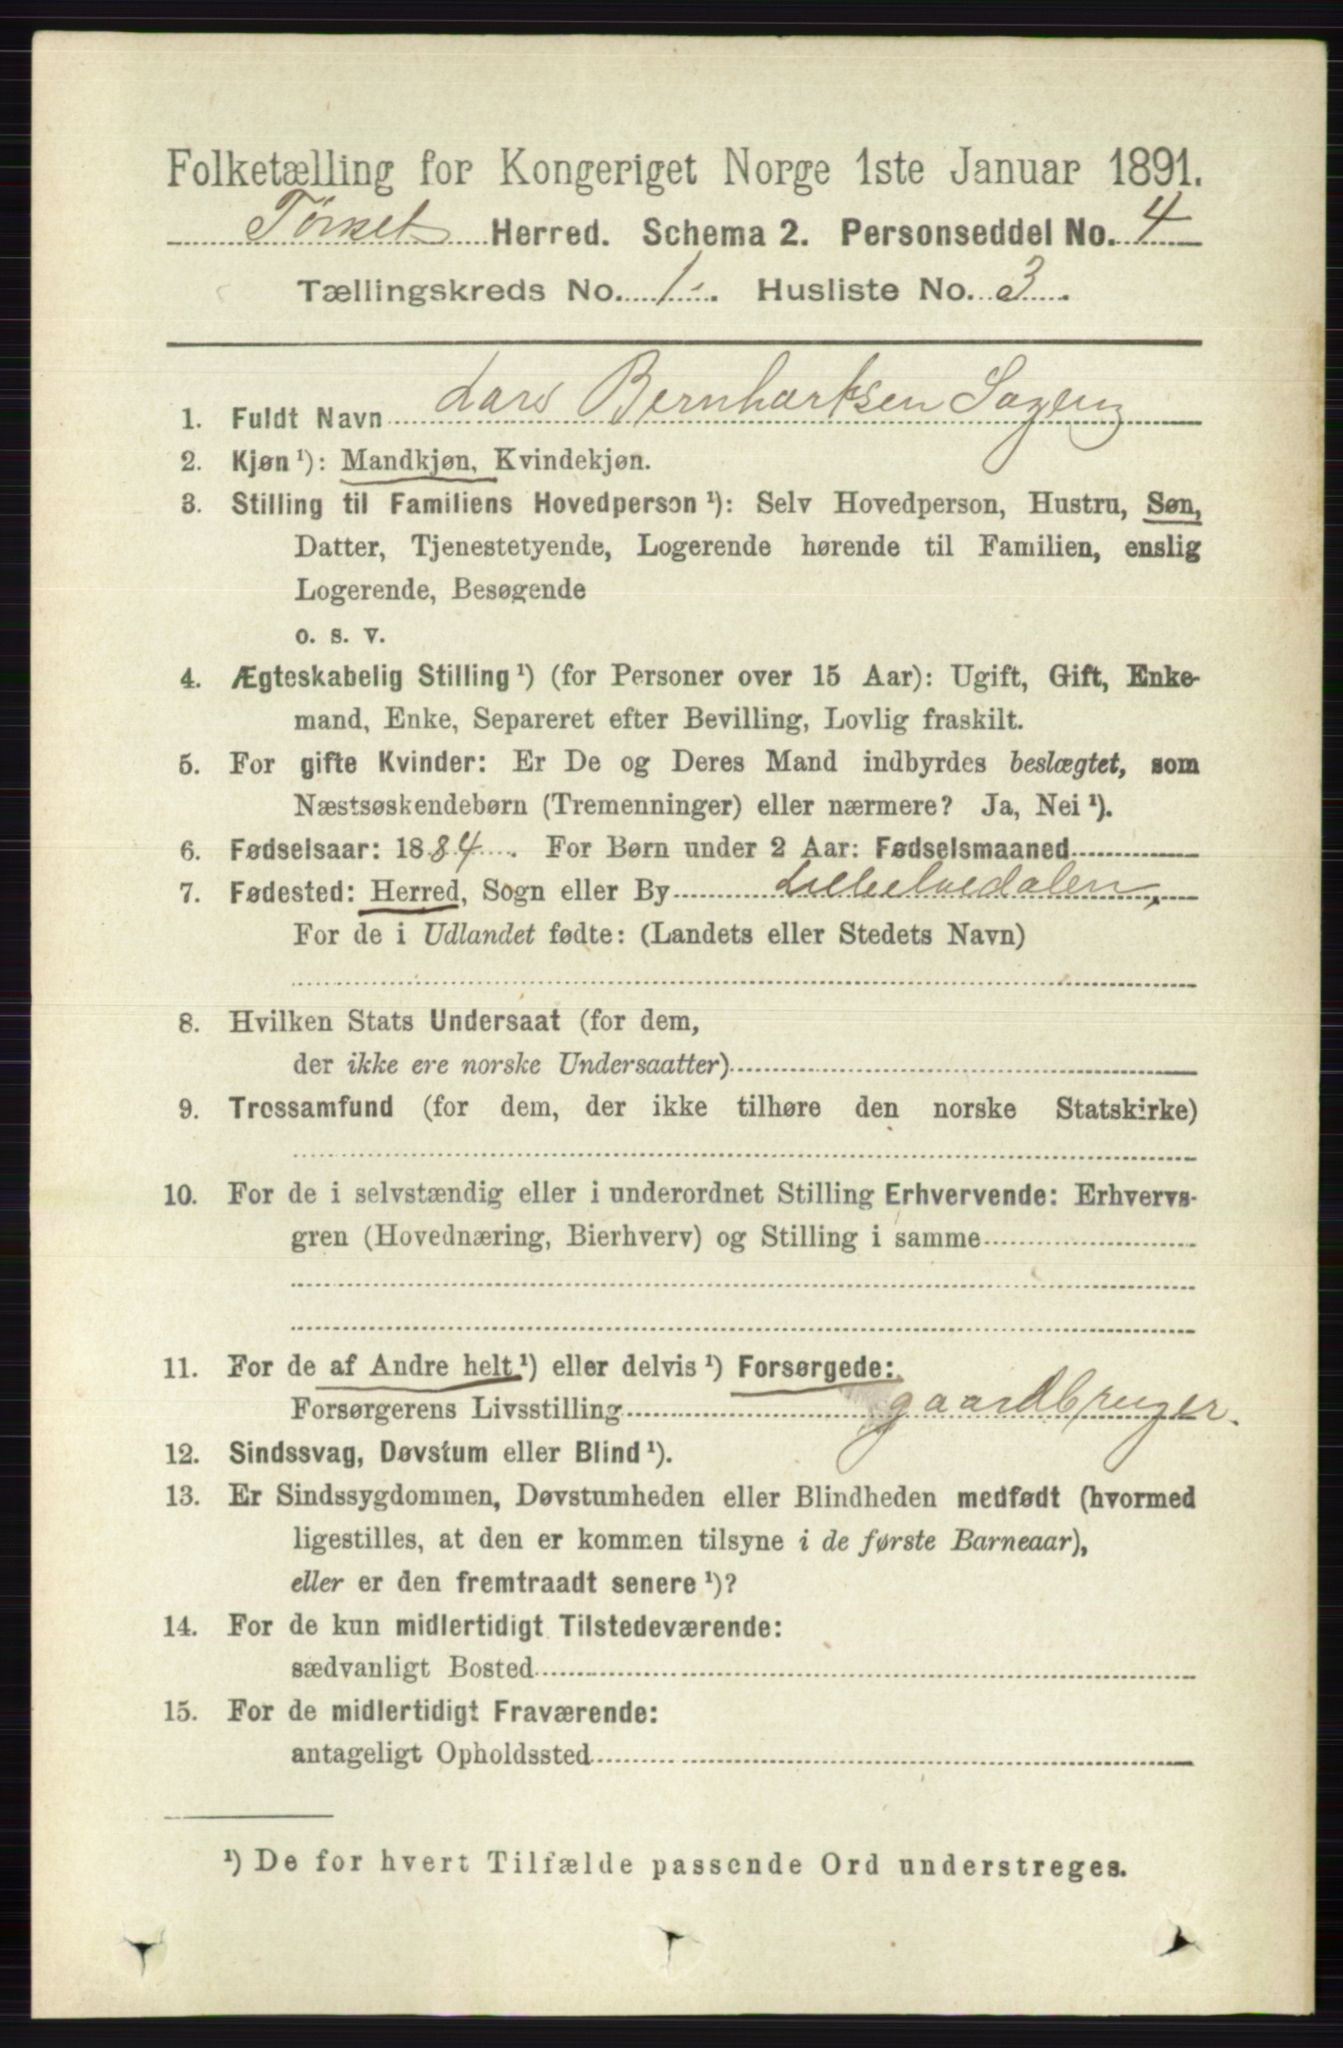 Folketælling for Kongeriget Norge 1ste Januar 1891.
Tønset Herred. Schema 2. Personseddel No. 4
Tællingskreds No. 1. Husliste No. 3.
1. Fuldt Navn Lars Bernhartsen Sageng
2. Kjøn ¹): Mandkjøn, Kvindekjøn.
3. Stilling til Familiens Hovedperson ¹): Selv Hovedperson, Hustru, Søn,
Datter, Tjenestetyende, Logerende hørende til Familien, enslig
Logerende, Besøgende
o. s. v.
4. Ægteskabelig Stilling ¹) (for Personer over 15 Aar): Ugift, Gift, Enke-
mand, Enke, Separeret efter Bevilling, Lovlig fraskilt.
5. For gifte Kvinder: Er De og Deres Mand indbyrdes beslægtet, som
Næstsøskendebørn (Tremenninger) eller nærmere? Ja, Nei ¹).
6. Fødselsaar: 1884. For Børn under 2 Aar: Fødselsmaaned
7. Fødested: Herred, Sogn eller By Lilleelvedalen,
For de i Udlandet fødte: (Landets eller Stedets Navn)
8. Hvilken Stats Undersaat (for dem,
der ikke ere norske Undersaatter)
9. Trossamfund (for dem, der ikke tilhøre den norske Statskirke)
10. For de i selvstændig eller i underordnet Stilling Erhvervende: Erhvervs-
gren (Hovednæring, Bierhverv) og Stilling i samme
11. For de af Andre helt ¹) eller delvis ¹) Forsørgede:
Forsørgerens Livsstilling gaardbruger.
12. Sindssvag, Døvstum eller Blind ¹).
13. Er Sindssygdommen, Døvstumheden eller Blindheden medfødt (hvormed
ligestilles, at den er kommen tilsyne i de første Barneaar),
eller er den fremtraadt senere ¹)?
14. For de kun midlertidigt Tilstedeværende:
sædvanligt Bosted
15. For de midlertidigt Fraværende:
antageligt Opholdssted
¹) De for hvert Tilfælde passende Ord understreges.